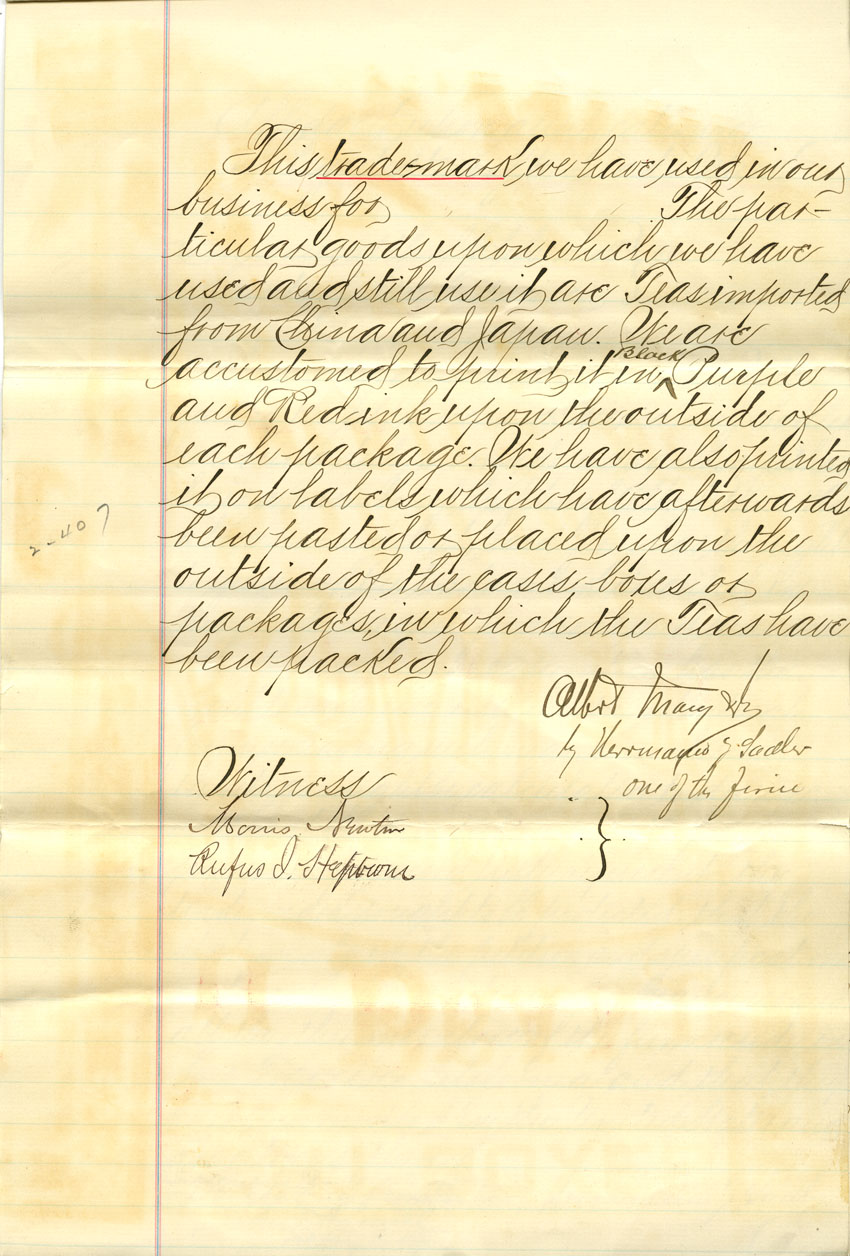 This trade-mark we have used in our
business for The par-
ticular goods upon which we have
used and still use it are Teas imported
from China and Japan. We are
accustomed to print it in Black Purple
and Red ink upon the outside of
each package. We have also printed
it on labels which have afterwards
been pasted or placed upon the
outside of the cases, boxes or
packages, in which the Teas have
been packed.
2-407
Albert
by
one of the firm
Witness
Morris Newton
Rufus J.